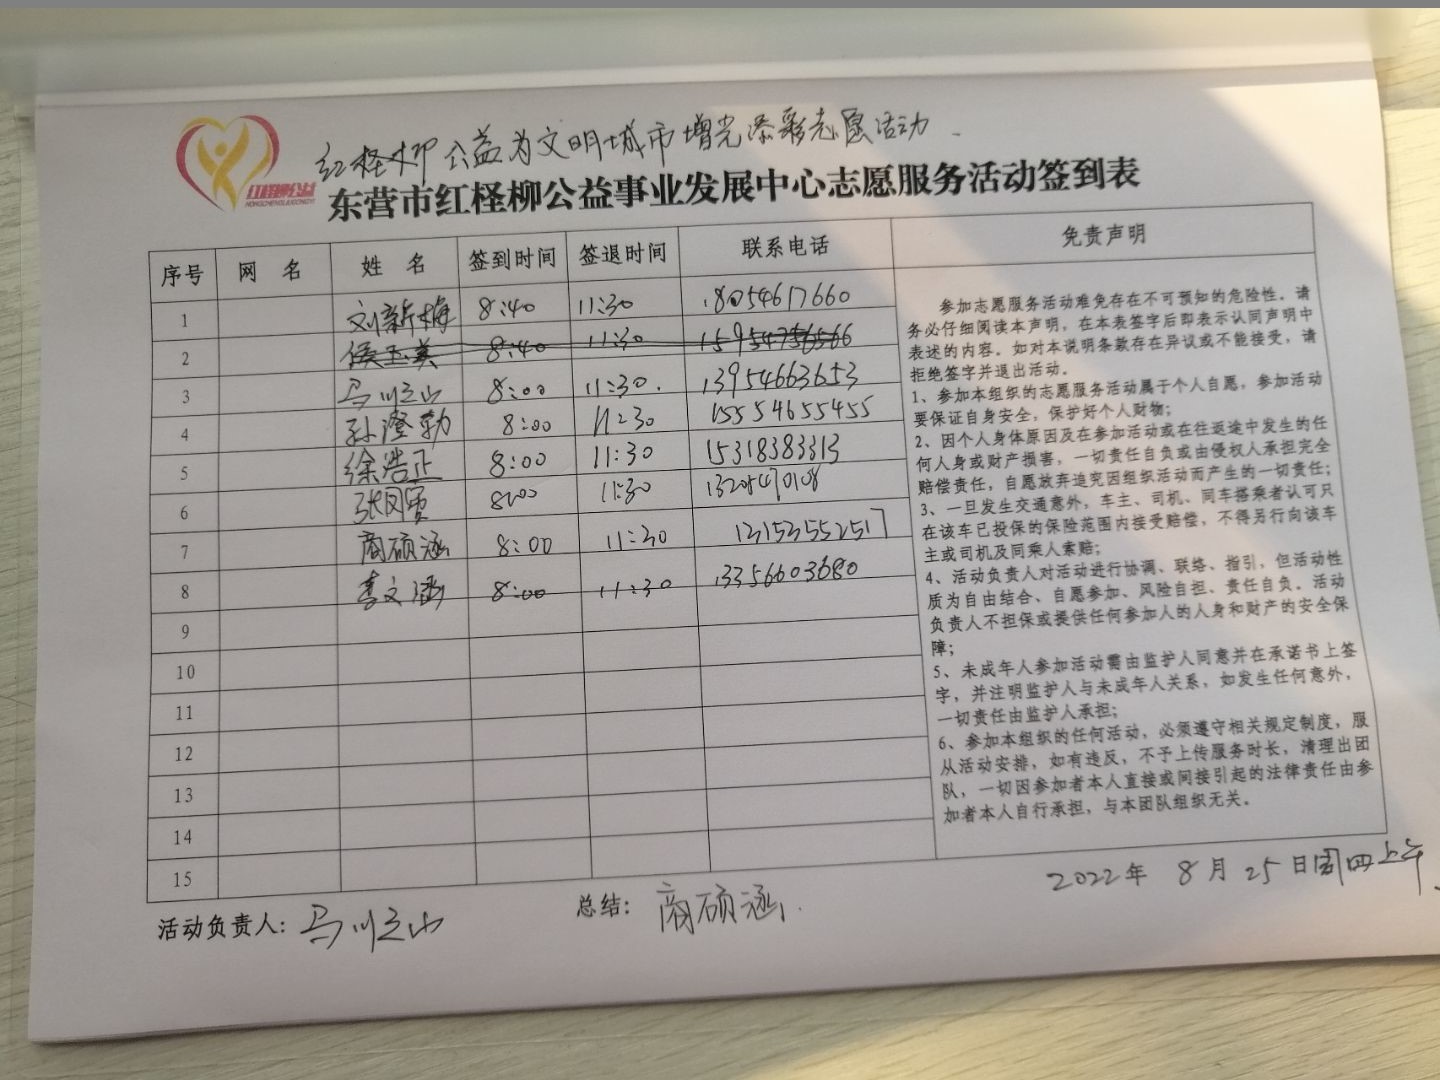 红柽柳公益为文明城市增光添彩志愿活动
红柽柳公益
HONGCHENGLIUGONGYI
东营市红柽柳公益事业发展中心志愿服务活动签到表
序号 网 名 姓 名 签到时间 签退时间 联系电话 免责声明
1 刘新梅 8:40 11:30 18054617660
2 侯玉英 8:40 11:30
3 马 山 8:00 11:30. 13954663653
4 孙澄勃 8:00 11:30 15554655455
5 徐浩正 8:00 11:30 15318383313
6 张凤 8:00 11:30 13205470108
7 商硕涵 8:00 11:30 13153552517
8 李文涵 8:00 11:30 13356603680
9
10
11
12
13
14
15
参加志愿服务活动难免存在不可预知的危险性。请
务必仔细阅读本声明，在本表签字后即表示认同声明中
表述的内容。如对本说明条款存在异议或不能接受，请
拒绝签字并退出活动。
1、参加本组织的志愿服务活动属于个人自愿，参加活动
要保证自身安全，保护好个人财物；
2、因个人身体原因及在参加活动或在往返途中发生的任
何人身或财产损害，一切责任自负或由侵权人承担完全
赔偿责任，自愿放弃追究因组织活动而产生的一切责任；
3、一旦发生交通意外，车主、司机、同车搭乘者认可只
在该车已投保的保险范围内接受赔偿，不得另行向该车
主或司机及同乘人索赔；
4、活动负责人对活动进行协调、联络、指引，但活动性
质为自由结合、自愿参加、风险自担、责任自负。活动
负责人不担保或提供任何参加人的人身和财产的安全保
障；
5、未成年人参加活动需由监护人同意并在承诺书上签
字，并注明监护人与未成年人关系，如发生任何意外，
一切责任由监护人承担；
6、参加本组织的任何活动，必须遵守相关规定制度，服
从活动安排，如有违反，不予上传服务时长，清理出团
队，一切因参加者本人直接或间接引起的法律责任由参
加者本人自行承担，与本团队组织无关。
活动负责人: 马 山 总结: 商硕涵. 2022年 8月 25日周四上午